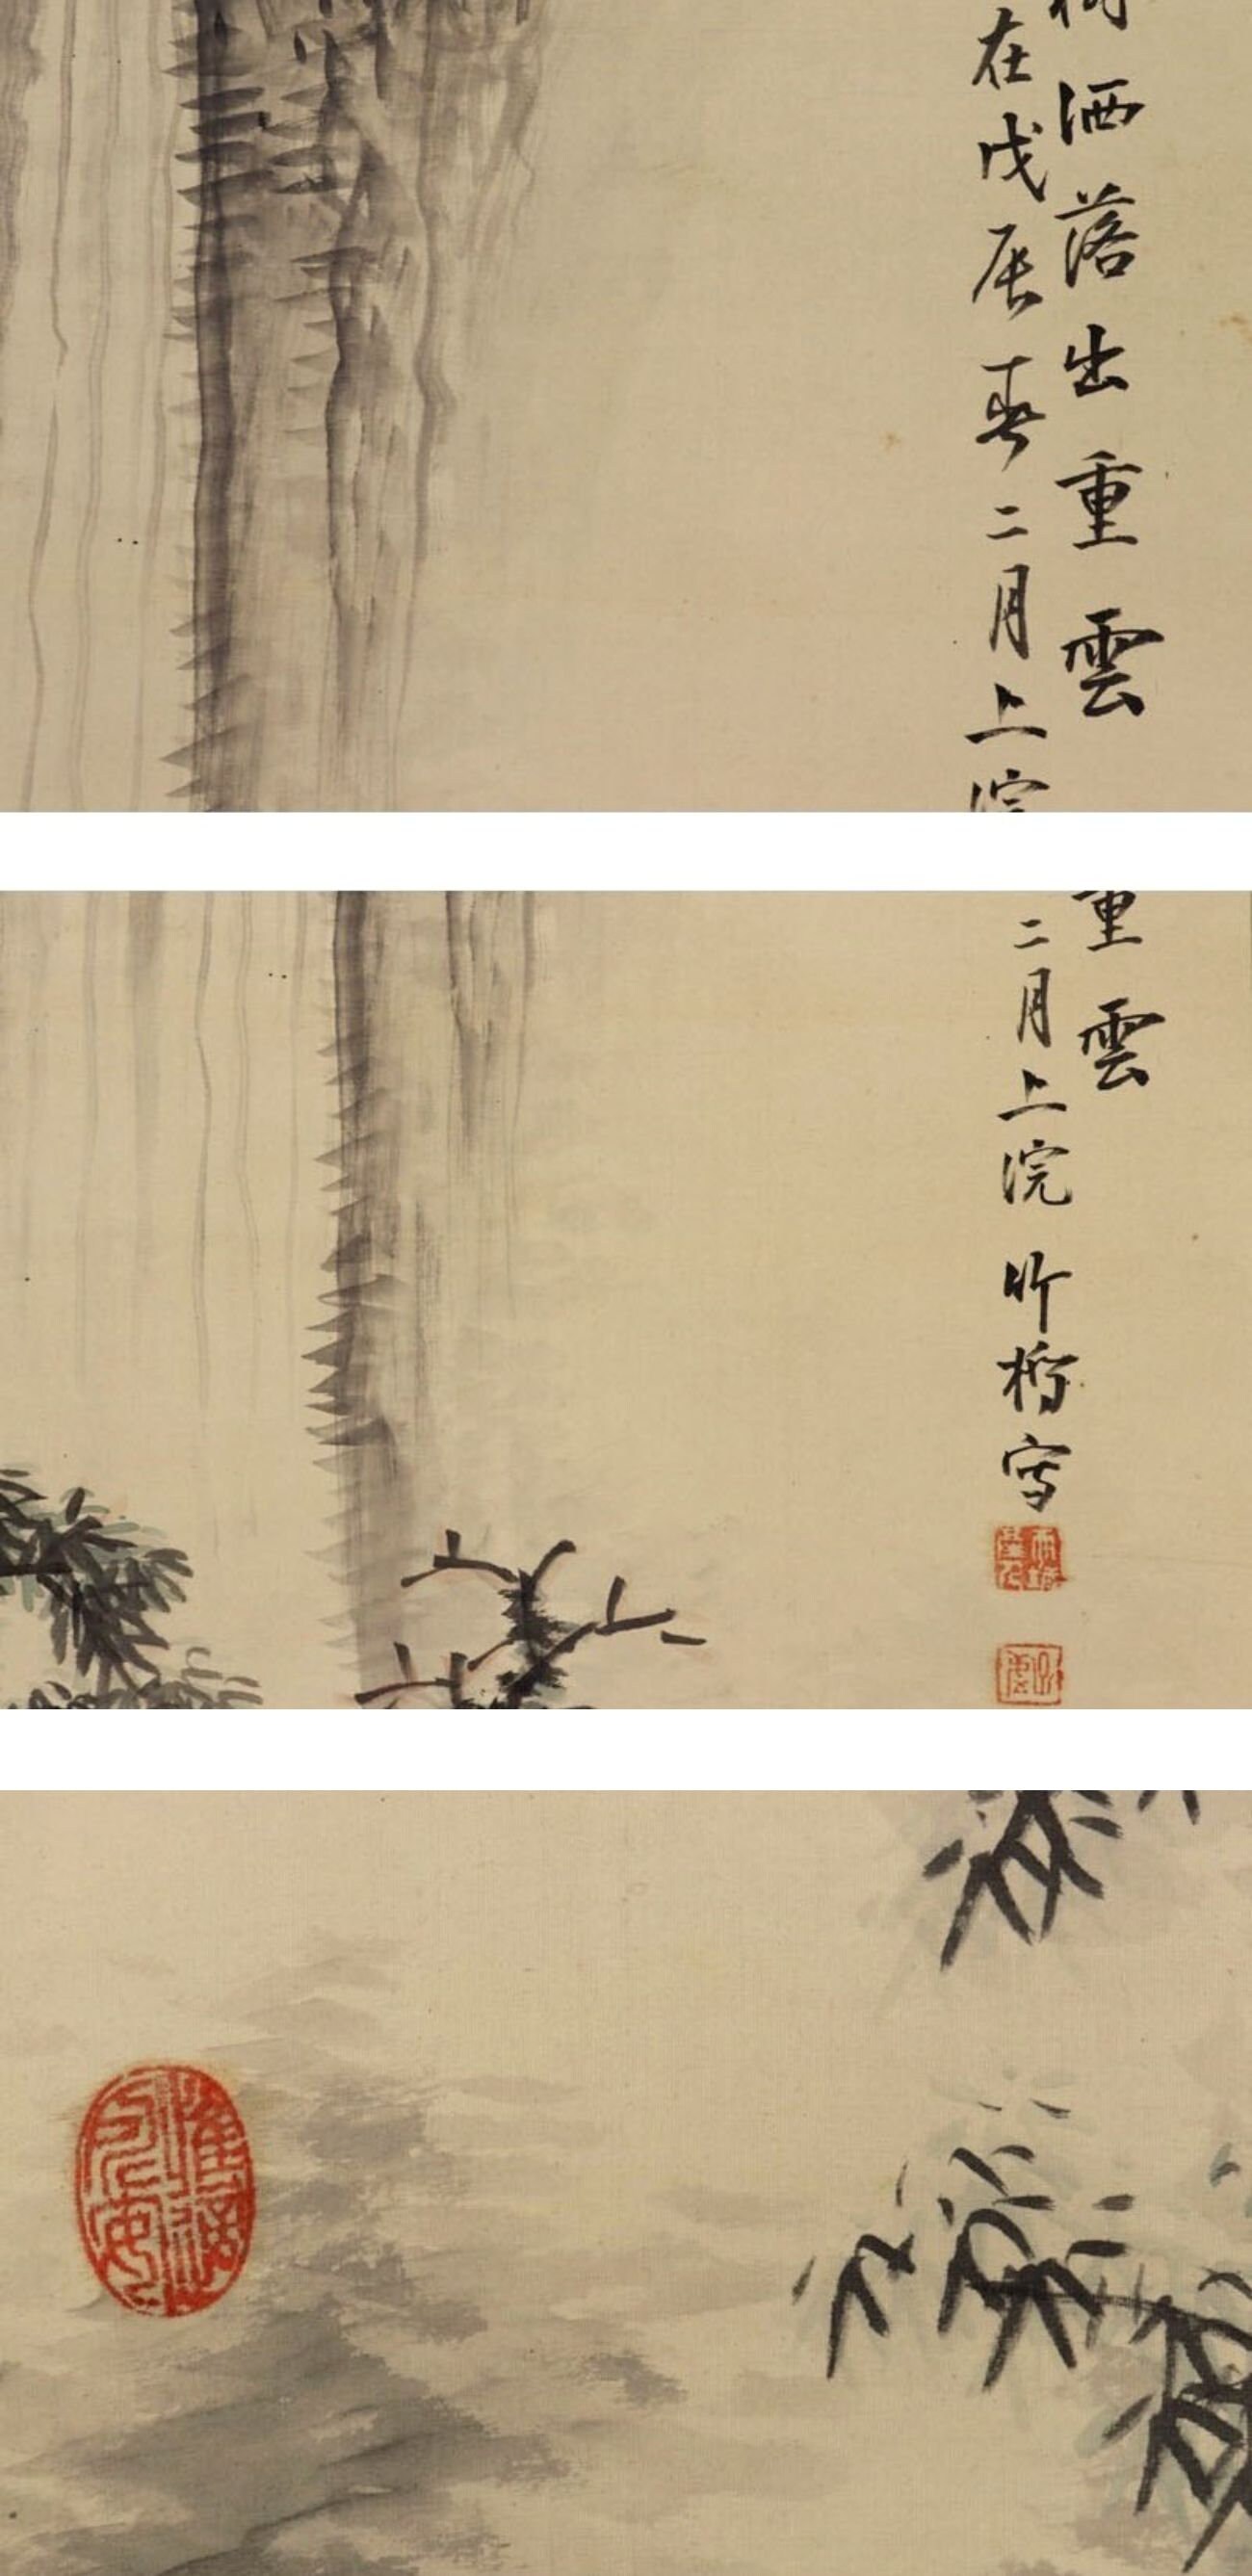 洒落出重雲
在戊辰春二月上
重雲
二月上浣 竹 寫